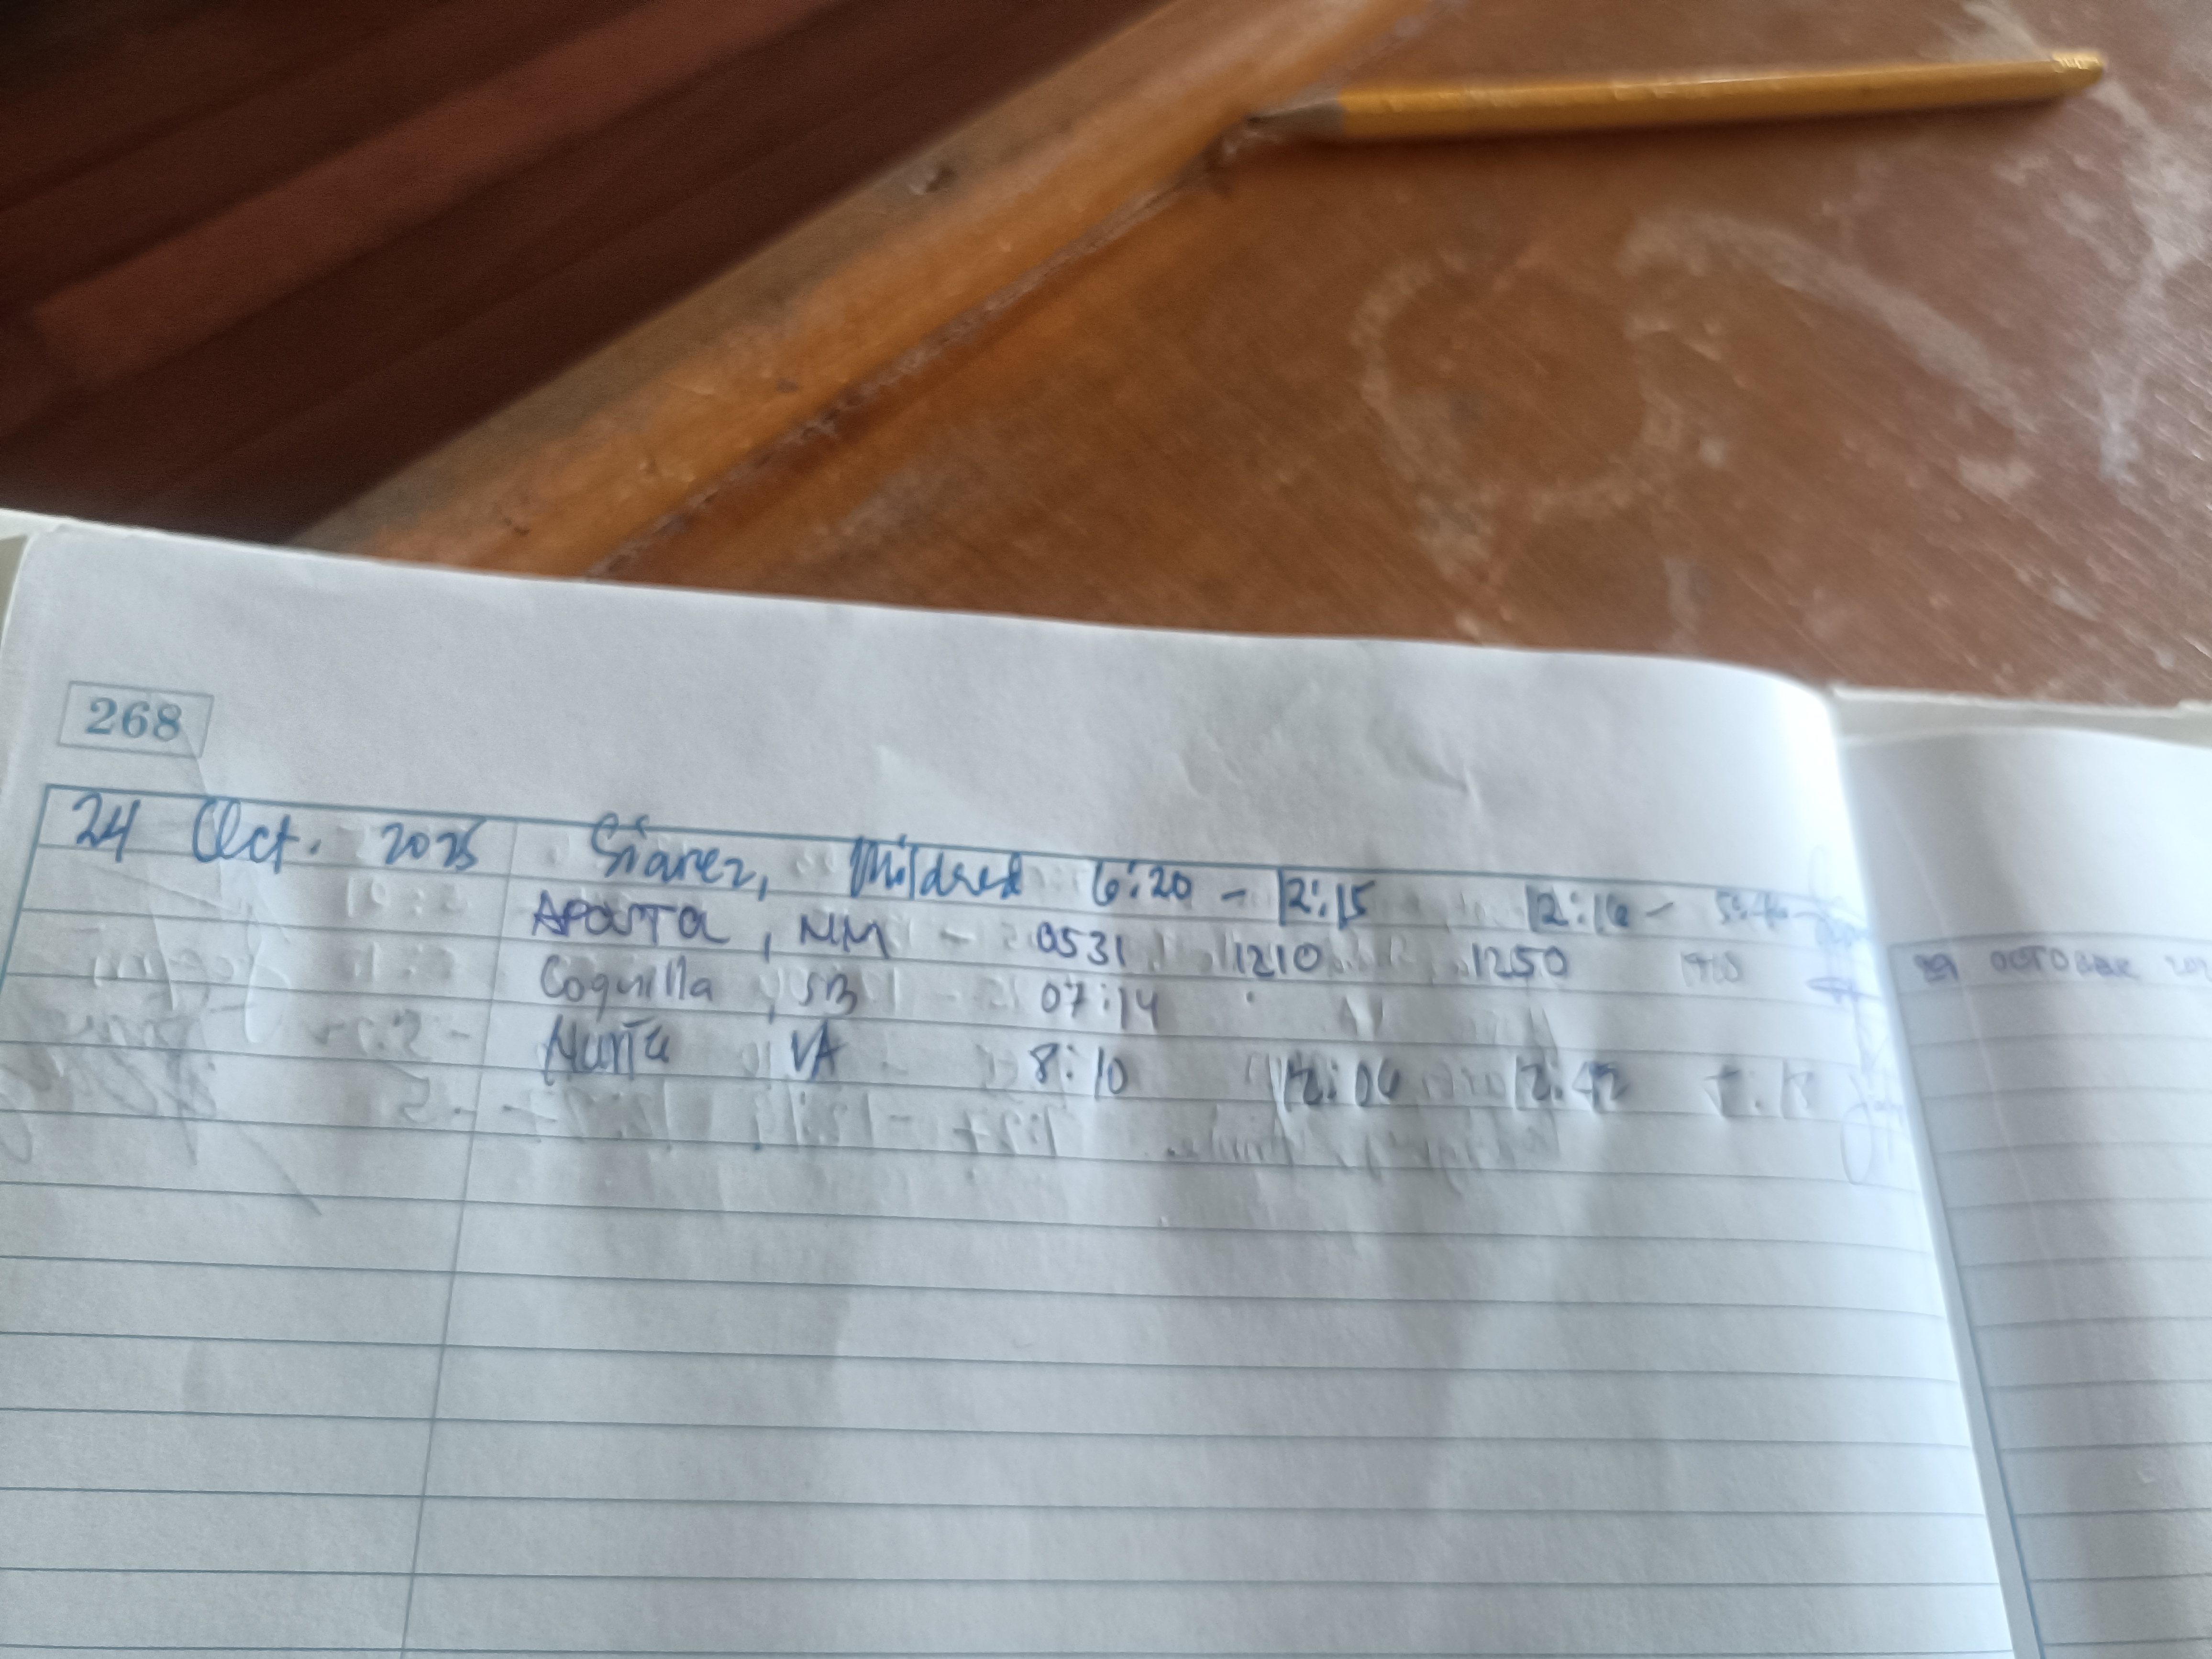 268
24 Oct. 2025 Siarez, Mildred 6:20 - 12:15 12:16 -
APOSTA, MM - 0531 1210 1250
Coquilla, SB 07:14
Nunta VA 8:10 12:06 12:42
29 OCTOBER